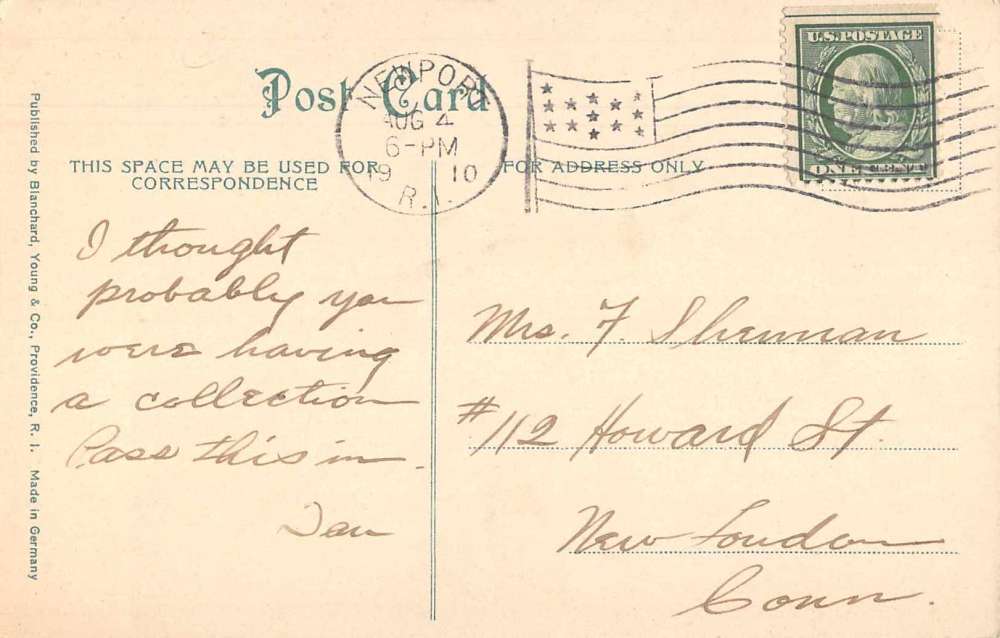 Post Card
THIS SPACE MAY BE USED FOR
CORRESPONDENCE
FOR ADDRESS ONLY
NEWPORT
AUG 4
6-PM
19 10
R.I.
U.S. POSTAGE
ONE CENT
Published by Blanchard, Young & Co., Providence, R. I. Made in Germany
I thought
probably you
were having
a collection
Pass this in.
Mrs. F. Sherman
#112 Howard St.
New London
Conn.